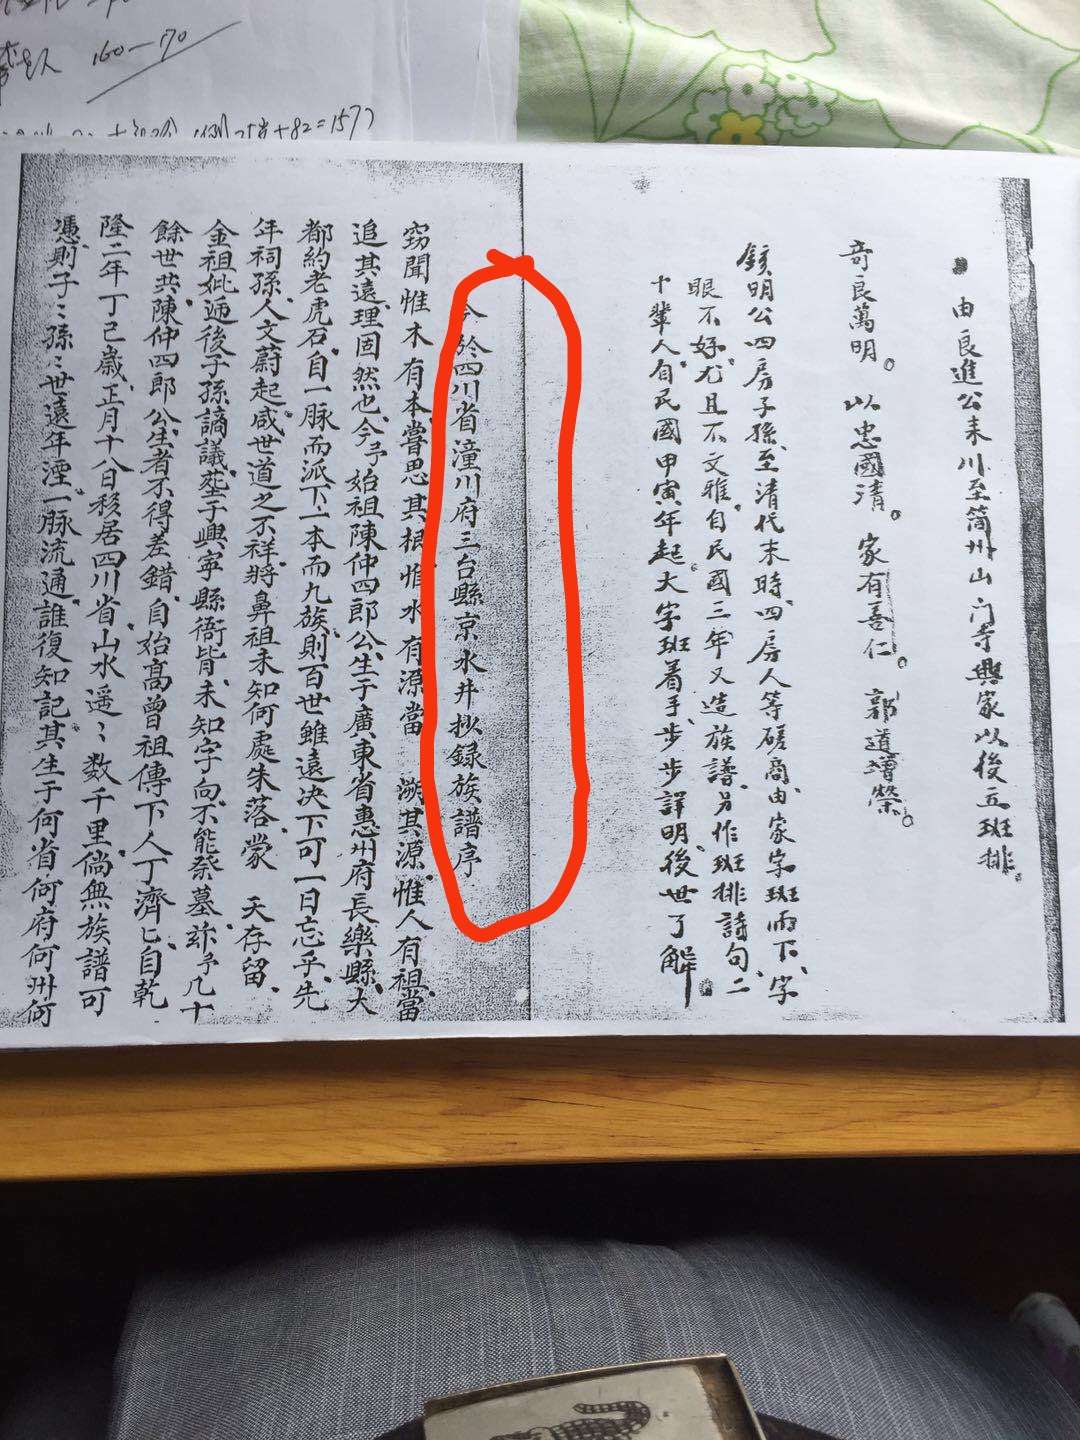 160—170
由良進公来川至简州山门寺興家以後五班排。
奇良萬明。以忠國清。家有善仁。郭道增榮。
錢明公四房子孫、至清代末時、四房人等磋商、由家字班而下、字
眼不好、尤且不文雅、自民國三年又造族譜、另作班排詩句、二
十輩人、自民國甲寅年起大字班着手、步步詳明、後世了解。
今於四川省潼川府三台縣京水井抄録族譜序
窃聞惟木有本、嘗思其根、惟水有源、當溯其源、惟人有祖、當
追其遠、理固然也、今予始祖陳仲四郎公、生于廣東省惠州府長樂縣、大
都約老虎石、自一脉而派下、一本而九族、則百世雖遠、决下可一日忘乎、先
年祠孫、人文蔚起、感世道之不祥、將鼻祖未知何處朱落、蒙天存留、
金祖妣、逓後子孫謫議、塟于興寧縣衙背、未知字向、不能祭墓、祚予几十
餘世共陳仲四郎公、生者不得差錯、自始高曾祖傳下人丁濟匕、自乾
隆二年丁已歲、正月十八日移居四川省、山水遥〻、数千里倘無族譜可
憑、則子〻孫〻世遠年湮、一脉流通、誰復知記、其生于何省何府何州何